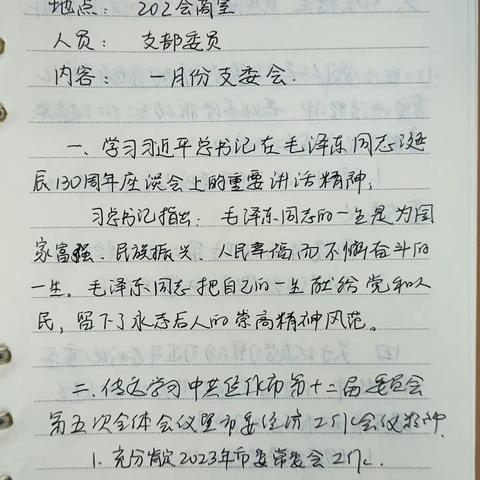 地点： 202会商室
人员： 支部委员
内容： 一月份支委会.
一、学习习近平总书记在毛泽东同志诞
辰130周年座谈会上的重要讲话精神；
习总书记指出：毛泽东同志的一生是为国
家富强、民族振兴、人民幸福而不懈奋斗的
一生。毛泽东同志把自己的一生献给党和人
民，留下了永志后人的崇高精神风范。
二、传达学习中共 市第十二届委员会
第五次全体会议暨市委经济工作会议精神.
1. 充分肯定2023年市委常委会工作.